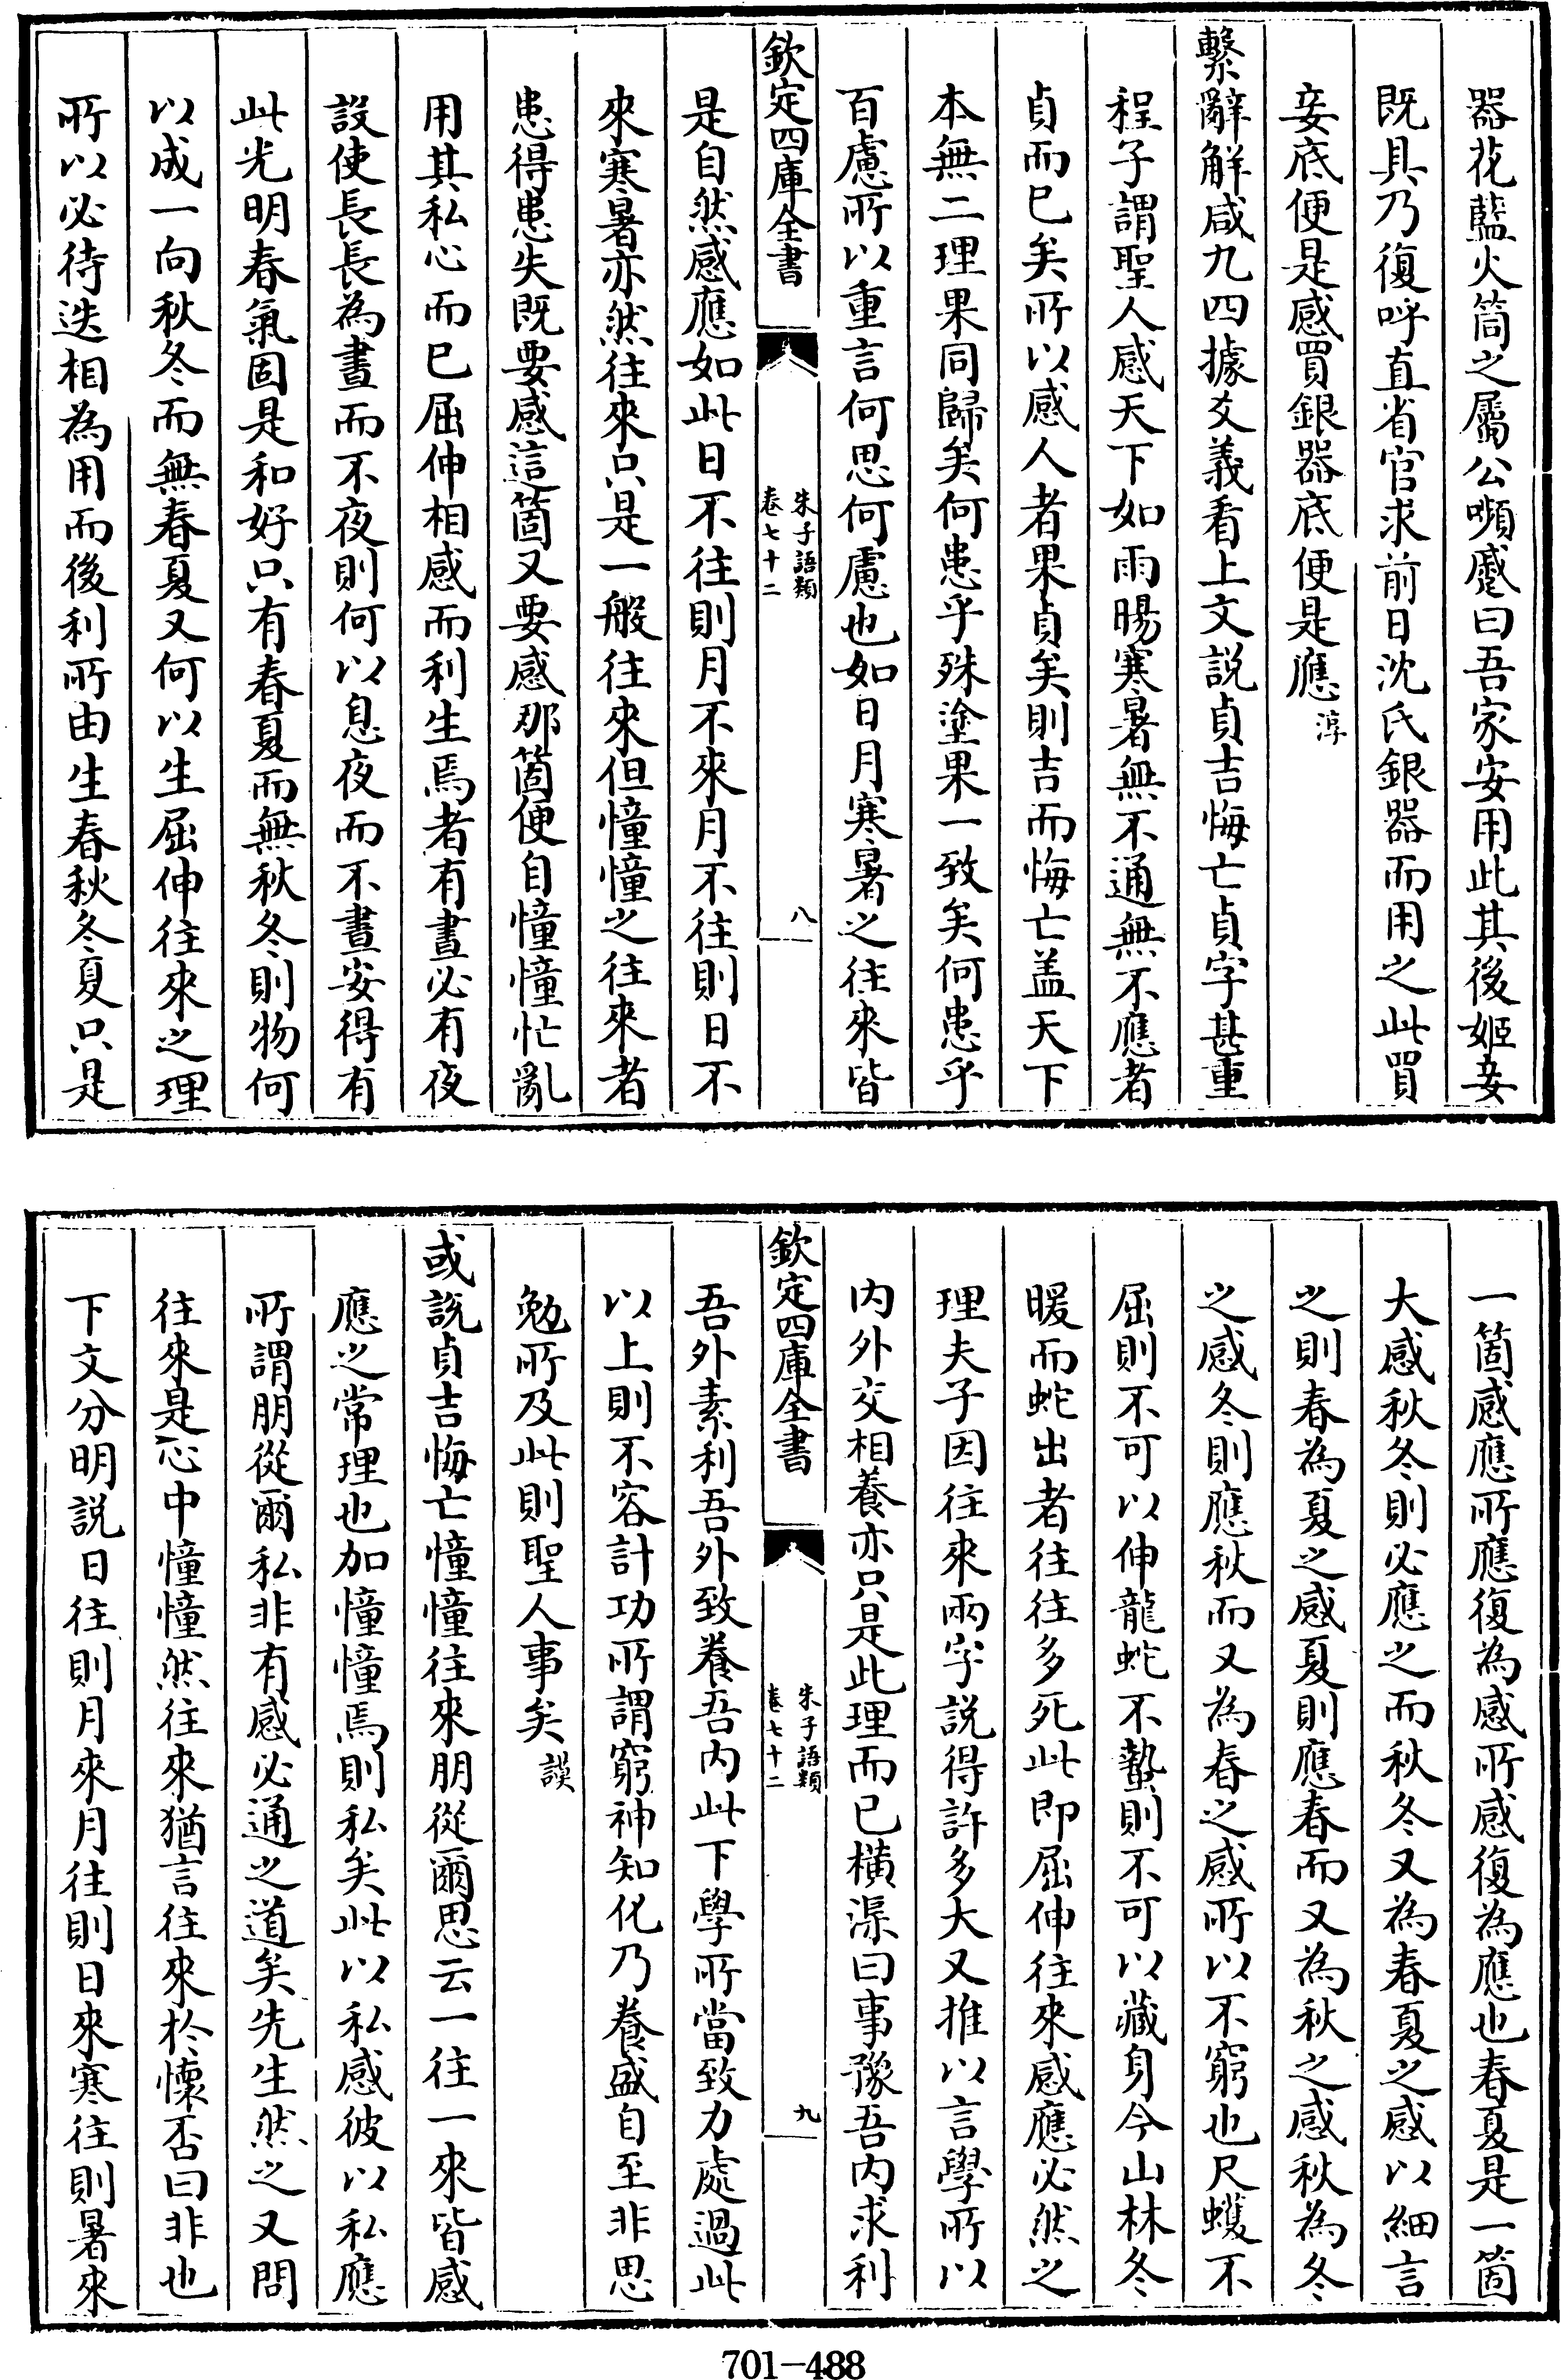 器花藍火筒之屬公嚬蹙曰吾家安用此其後姬妾
既具乃復呼直省官求前日沈氏銀器而用之此買
妾底便是感買銀器底便是應淳
繫辭解咸九四據爻義看上文説貞吉悔亡貞字甚重
程子謂聖人感天下如雨暘寒暑無不通無不應者
貞而已矣所以感人者果貞矣則吉而悔亡盖天下
本無二理果同歸矣何患乎殊塗果一致矣何患乎
百慮所以重言何思何慮也如日月寒暑之往來皆
欽定四庫全書
朱子語類
卷七十二
八
是自然感應如此日不往則月不來月不往則日不
來寒暑亦然往來只是一般往來但憧憧之往來者
患得患失既要感這箇又要感那箇便自憧憧忙亂
用其私心而已屈伸相感而利生焉者有晝必有夜
設使長長為晝而不夜則何以息夜而不晝安得有
此光明春氣固是和好只有春夏而無秋冬則物何
以成一向秋冬而無春夏又何以生屈伸往來之理
所以必待迭相為用而後利所由生春秋冬夏只是
一箇感應所應復為感所感復為應也春夏是一箇
大感秋冬則必應之而秋冬又為春夏之感以細言
之則春為夏之感夏則應春而又為秋之感秋為冬
之感冬則應秋而又為春之感所以不窮也尺蠖不
屈則不可以伸龍蛇不蟄則不可以藏身今山林冬
暖而蛇出者往往多死此即屈伸往來感應必然之
理夫子因往來兩字説得許多大又推以言學所以
内外交相養亦只是此理而已横渠曰事豫吾内求利
欽定四庫全書
朱子語類
卷七十二
九
吾外素利吾外致養吾内此下學所當致力處過此
以上則不容計功所謂窮神知化乃養盛自至非思
勉所及此則聖人事矣謨
或説貞吉悔亡憧憧往來朋從爾思云一往一來皆感
應之常理也加憧憧焉則私矣此以私感彼以私應
所謂朋從爾私非有感必通之道矣先生然之又問
往來是心中憧憧然往來猶言往來於懷否曰非也
下文分明説日往則月來月往則日來寒往則暑來
701-488